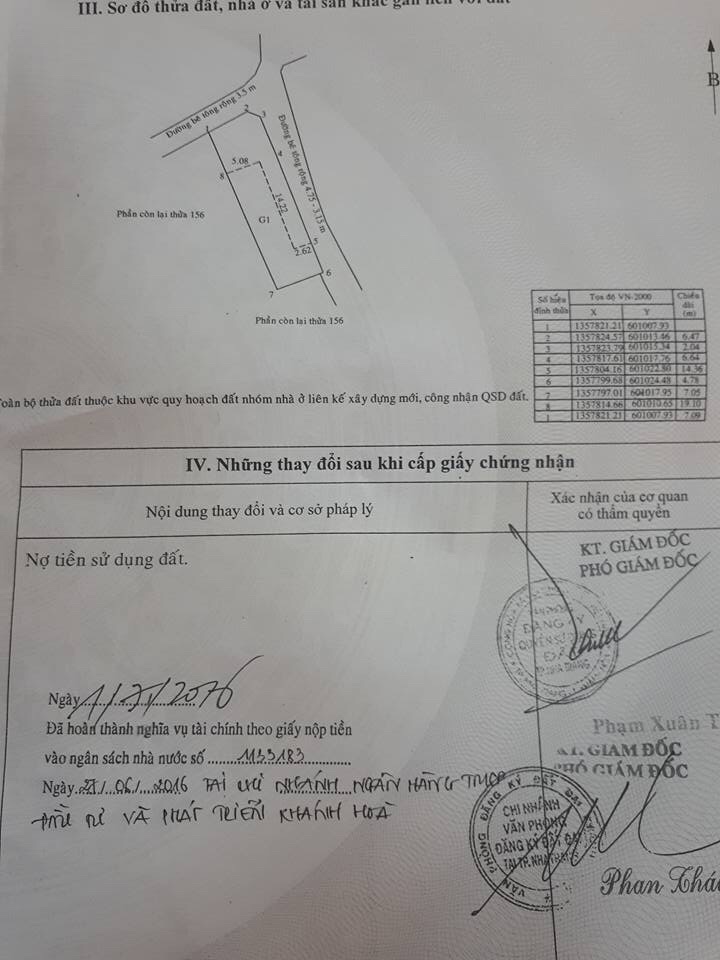 III. Sơ đồ thửa đất, nhà ở và tài sản khác gắn liền với đất
B
Đường bê tông rộng 3.5 m
Đường bê tông rộng 4.75 - 3.15 m
1
2
3
4
5.08
8
14.22
G1
Phần còn lại thửa 156
5
2.62
6
7
Phần còn lại thửa 156
Số hiệu đỉnh thửa Tọa độ VN-2000 Chiều dài (m)
X Y
1 1357821.21 601007.93
2 1357824.57 601013.46 6.47
3 1357823.79 601015.34 2.04
4 1357817.61 601017.76 6.64
5 1357804.16 601022.80 14.36
6 1357799.68 601024.48 4.78
7 1357797.01 601017.95 7.05
8 1357814.66 601010.65 19.10
1 1357821.21 601007.93 7.09
Toàn bộ thửa đất thuộc khu vực quy hoạch đất nhóm nhà ở liên kế xây dựng mới, công nhận QSD đất.
IV. Những thay đổi sau khi cấp giấy chứng nhận
Nội dung thay đổi và cơ sở pháp lý
Xác nhận của cơ quan
có thẩm quyền
Nợ tiền sử dụng đất.
KT. GIÁM ĐỐC
PHÓ GIÁM ĐỐC
ĐĂNG KÝ
QUYỀN SỬ
Phạm Xuân T
Ngày 1/7/2016
Đã hoàn thành nghĩa vụ tài chính theo giấy nộp tiền
vào ngân sách nhà nước số ........1153183................
KT. GIÁM ĐỐC
PHÓ GIÁM ĐỐC
Ngày 27/.06./...2016 TẠI CHI NHÁNH NGÂN HÀNG TMCP
ĐẦU TƯ VÀ PHÁT TRIỂN KHÁNH HOÀ
VĂN PHÒNG ĐĂNG KÝ ĐẤT ĐAI
CHI NHÁNH
VĂN PHÒNG
ĐĂNG KÝ ĐẤT ĐAI
TẠI TP.NHA TRANG
Phan Khá